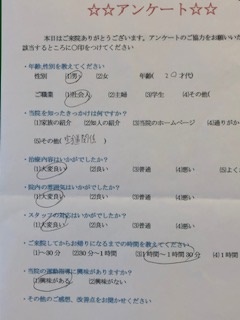 ☆☆アンケート☆☆
本日はご来院ありがとうございます。アンケートのご協力をお願いいた
該当するところに○印をつけてください
・年齢,性別を教えてください
性別 (1)男 (2)女 年齢( 20才代)
ご職業 (1)社会人 (2)主婦 (3)学生 (4)その他(
・当院を知ったきっかけは何ですか?
(1)家族の紹介 (2)知人の紹介 (3)当院のホームページ (4)通りが
(5)その他(
・治療内容はいかがでしたか?
(1)大変良い (2)良い (3)普通 (4)悪い (5)よく
・院内の雰囲気はいかがでしたか?
(1)大変良い (2)良い (3)普通 (4)悪い
・スタッフの対応はいかがでしたか?
(1)大変良い (2)良い (3)普通 (4)悪い
・ご来院してからお帰りになるまでの時間を教えてください
(1)~30分 (2)30分~1時間 (3)1時間~1時間30分 (4)1時間
・当院の運動指導に興味がありますか?
(1)興味がある (2)興味がない
・その他のご感想、改善点をお聞かせください